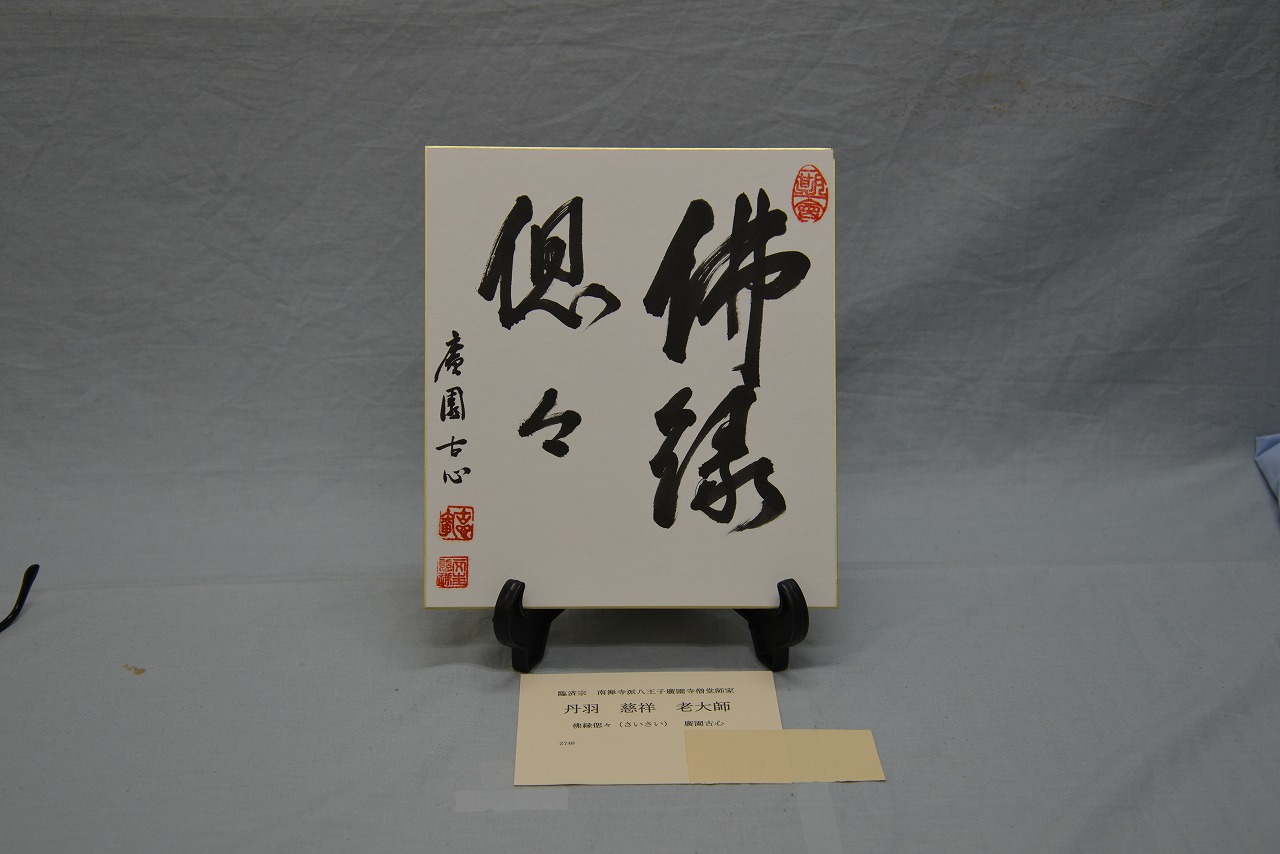 佛縁
偲々
廣園古心
臨済宗　南禅寺派八王子廣園寺僧堂師家
丹羽　慈祥　老大師
佛縁偲々（さいさい）　廣園古心
2746